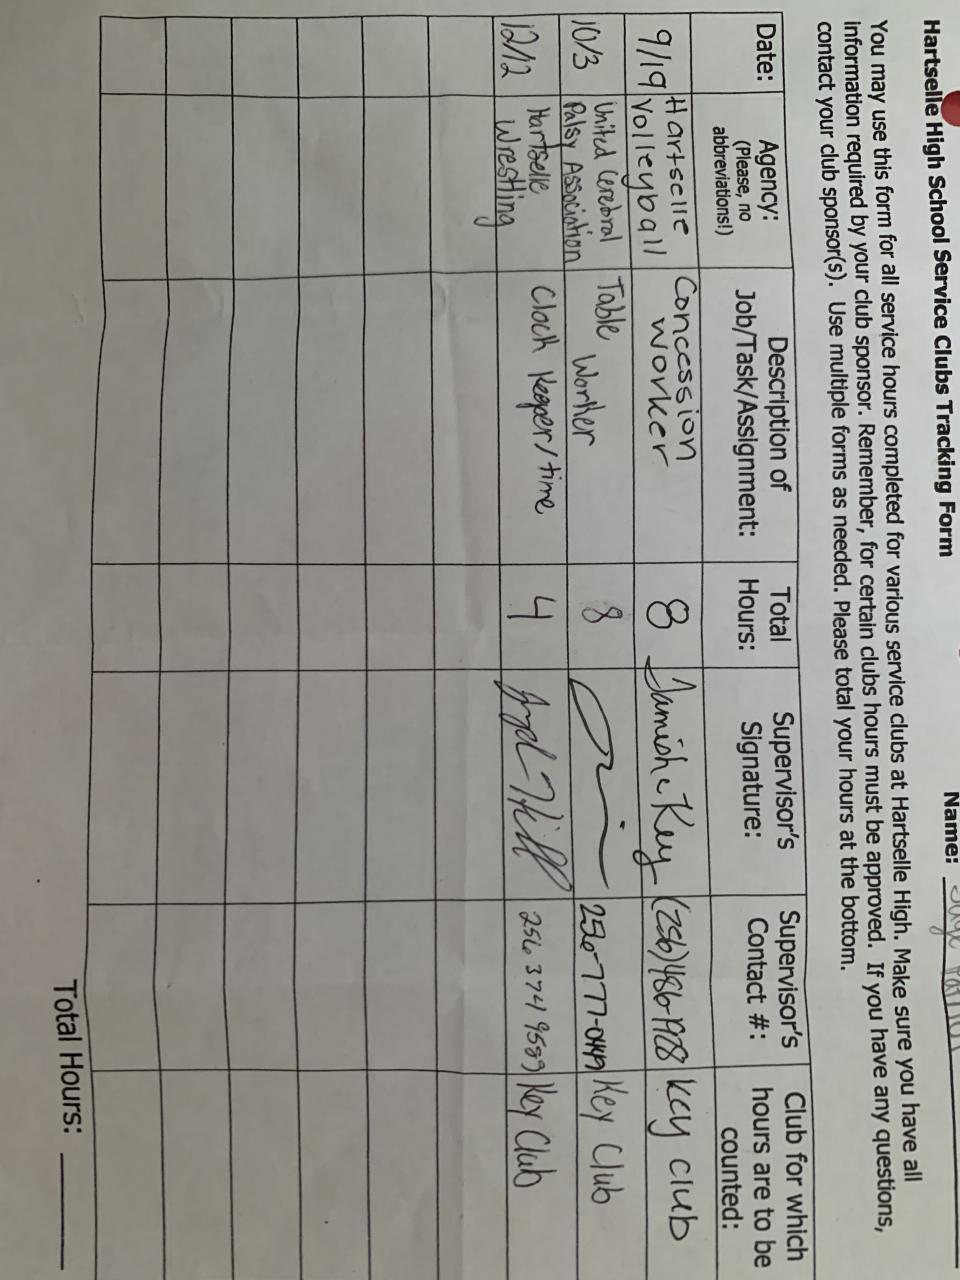 Hartselle High School Service Clubs Tracking Form
Name:
You may use this form for all service hours completed for various service clubs at Hartselle High. Make sure you have all
information required by your club sponsor. Remember, for certain clubs hours must be approved. If you have any questions,
contact your club sponsor(s). Use multiple forms as needed. Please total your hours at the bottom.
Date:
Agency:
(Please, no
abbreviations!)
Description of
Job/Task/Assignment:
Total
Hours:
Supervisor's
Signature:
Supervisor's
Contact #:
Club for which
hours are to be
counted:
9/19
Hartselle
Volleyball
Concession
Worker
8
Key
(256)486-1928
Key club
10/3
United Cerebral
Palsy Association
Table Worker
8
256-777-0449
Key Club
12/12
Hartselle
Wrestling
Clock Keeper/time
4
Hill
256 374 9589
Key Club
Total Hours: